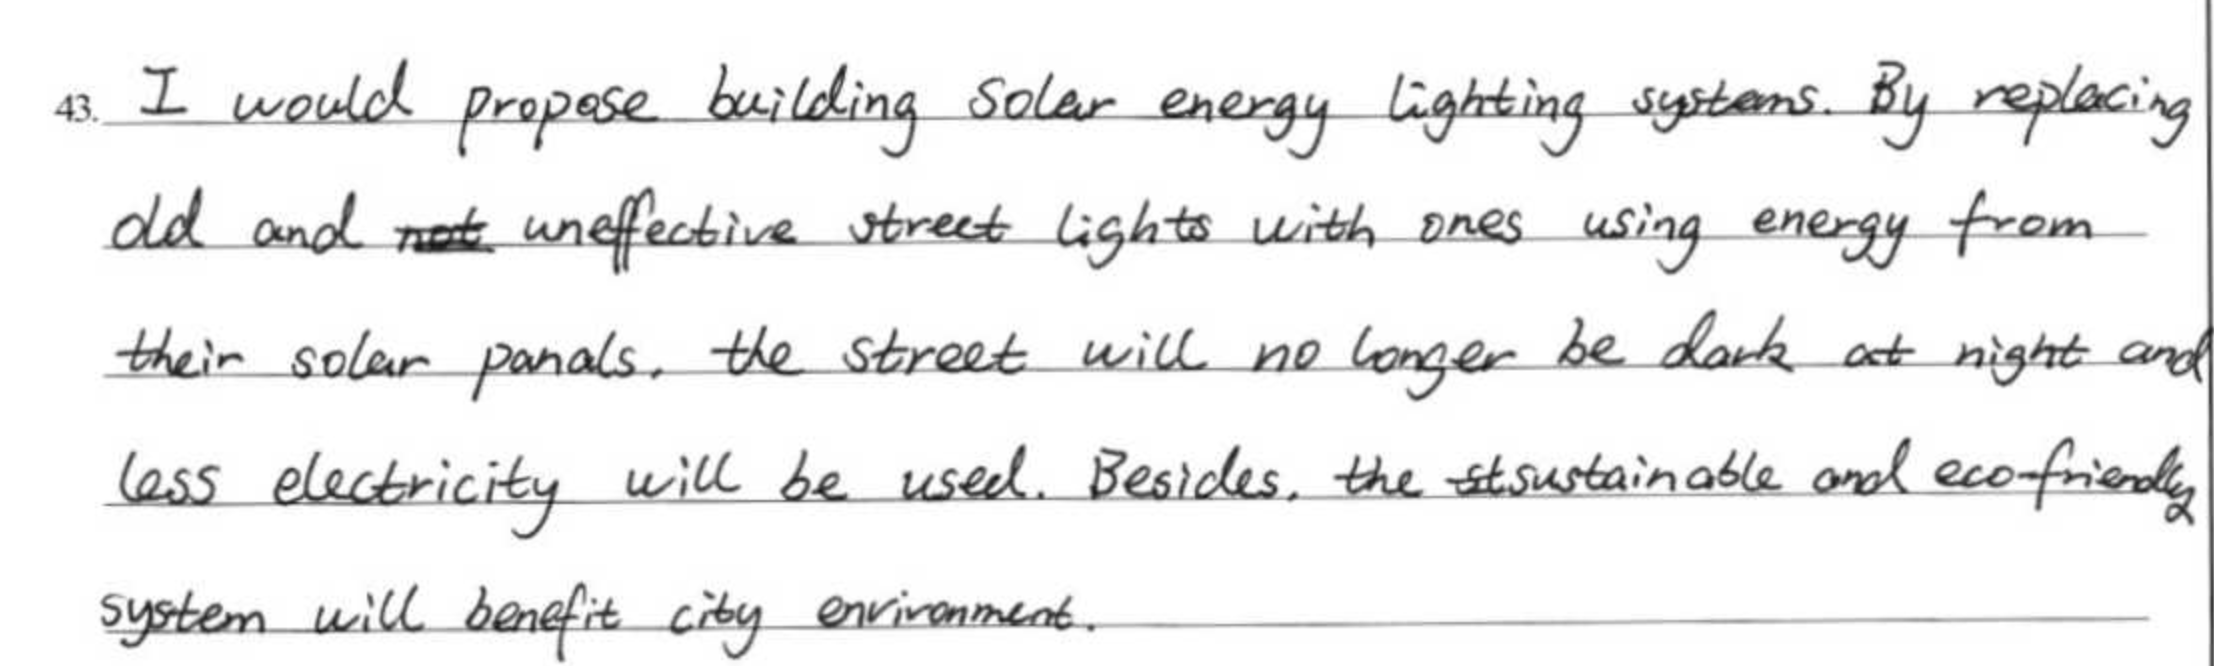 43. I would propose building solar energy lighting systems. By replacing
old and not uneffective street lights with ones using energy from
their solar panals, the street will no longer be dark at night and
less electricity will be used. Besides, the st sustainable and eco-friendly
system will benefit city environment.